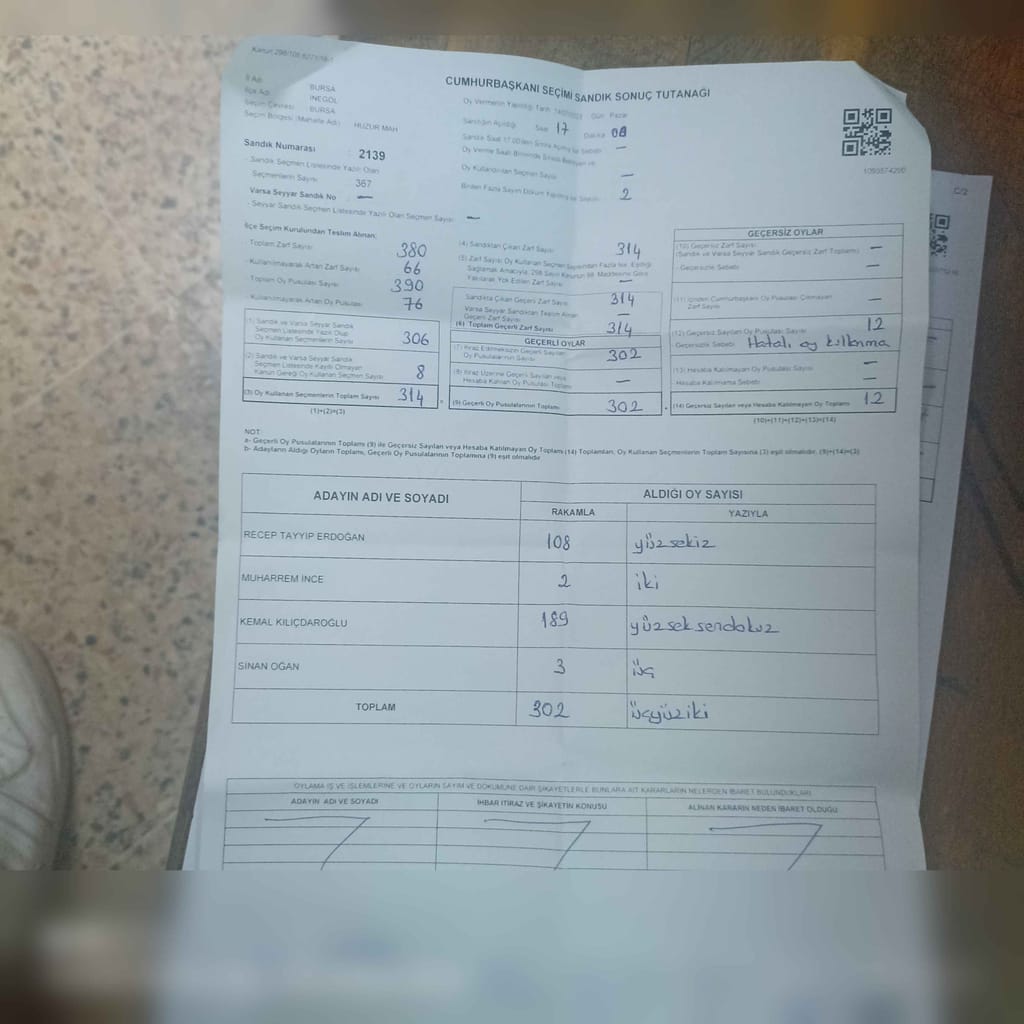 CUMHURBAŞKANI SEÇİMİ SANDIK SONUÇ TUTANAĞI
İl Adı BURSA
İlçe Adı İNEGÖL
Seçim Çevresi BURSA
Seçim Bölgesi (Mahalle Adı) HUZUR MAH
Sandık Numarası 2139
Sandık Seçmen Listesinde Yazılı Olan
Seçmenlerin Sayısı 367
Varsa Seyyar Sandık No —
Seyyar Sandık Seçmen Listesinde Yazılı Olan Seçmen Sayısı —
Gün Pazar
Sandığın Açıldığı Saat 17 Dakika
Oy Kullandırılan Seçmen Sayısı —
2
İlçe Seçim Kurulundan Teslim Alınan:
Toplam Zarf Sayısı 380
Kullanılmayarak Artan Zarf Sayısı 66
Toplam Oy Pusulası Sayısı 390
Kullanılmayarak Artan Oy Pusulası 76
(1) Sandık ve Varsa Seyyar Sandık
Seçmen Listesinde Yazılı Olup
Oy Kullanan Seçmenlerin Sayısı 306
(2) Sandık ve Varsa Seyyar Sandık
Seçmen Listesinde Kayıtlı Olmayan
Kanun Gereği Oy Kullanan Seçmen Sayısı 8
(3) Oy Kullanan Seçmenlerin Toplam Sayısı 314
(1)+(2)=(3)
(4) Sandıktan Çıkan Zarf Sayısı 314
(5) Zarf Sayısı Oy Kullanan Seçmen Sayısından Fazla İse, Eşitliği
Sağlamak Amacıyla, 298 Sayılı Kanunun 98. Maddesine Göre
Yakılarak Yok Edilen Zarf Sayısı —
Sandıkta Çıkan Geçerli Zarf Sayısı 314
Varsa Seyyar Sandıktan Teslim Alınan
Geçerli Zarf Sayısı —
(6) Toplam Geçerli Zarf Sayısı 314
GEÇERLİ OYLAR
(7) İtiraz Edilmeksizin Geçerli Sayılan
Oy Pusulalarının Sayısı 302
(8) İtiraz Üzerine Geçerli Sayılan veya
Hesaba Katılan Oy Pusulası Toplamı —
(9) Geçerli Oy Pusulalarının Toplamı 302
1095574200
GEÇERSİZ OYLAR
(10) Geçersiz Zarf Sayısı —
(Sandık ve Varsa Seyyar Sandık Geçersiz Zarf Toplamı)
Geçersizlik Sebebi —
(11) İçinden Cumhurbaşkanı Oy Pusulası Çıkmayan
Zarf Sayısı —
(12) Geçersiz Sayılan Oy Pusulası Sayısı 12
Geçersizlik Sebebi Hatalı oy kullanma
(13) Hesaba Katılmayan Oy Pusulası Sayısı —
Hesaba Katılmama Sebebi —
(14) Geçersiz Sayılan veya Hesaba Katılmayan Oy Toplamı 12
(10)+(11)+(12)+(13)=(14)
NOT:
a- Geçerli Oy Pusulalarının Toplamı (9) ile Geçersiz Sayılan veya Hesaba Katılmayan Oy Toplamı (14) Toplamları, Oy Kullanan Seçmenlerin Toplam Sayısına (3) eşit olmalıdır. (9)+(14)=(3)
b- Adayların Aldığı Oyların Toplamı, Geçerli Oy Pusulalarının Toplamına (9) eşit olmalıdır
ADAYIN ADI VE SOYADI ALDIĞI OY SAYISI
RAKAMLA YAZIYLA
RECEP TAYYİP ERDOĞAN 108 yüzsekiz
MUHARREM İNCE 2 iki
KEMAL KILIÇDAROĞLU 189 yüzseksendokuz
SİNAN OĞAN 3 üç
TOPLAM 302 üçyüziki
OYLAMA İŞ VE İŞLEMLERİNE VE OYLARIN SAYIM VE DÖKÜMÜNE DAİR ŞİKAYETLERLE BUNLARA AİT KARARLARIN NELERDEN İBARET BULUNDUKLARI
ADAYIN ADI VE SOYADI İHBAR İTİRAZ VE ŞİKAYETİN KONUSU ALINAN KARARIN NEDEN İBARET OLDUĞU